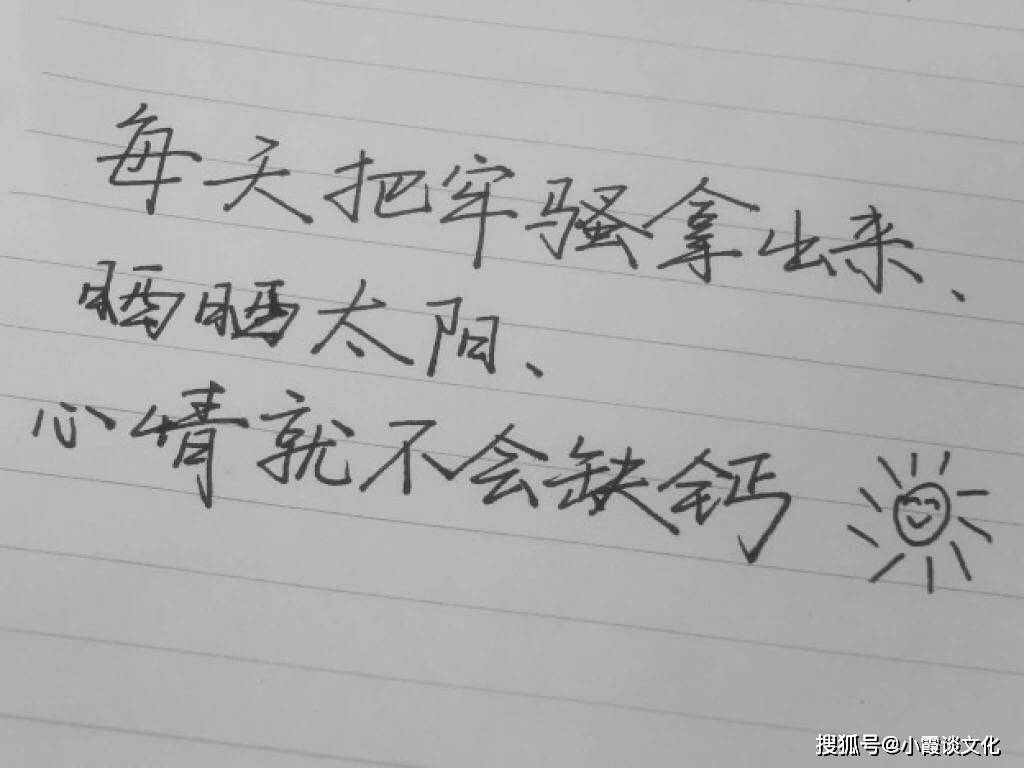 每天把牢骚拿出来、
晒晒太阳、
心情就不会缺钙
搜狐号@小霞谈文化